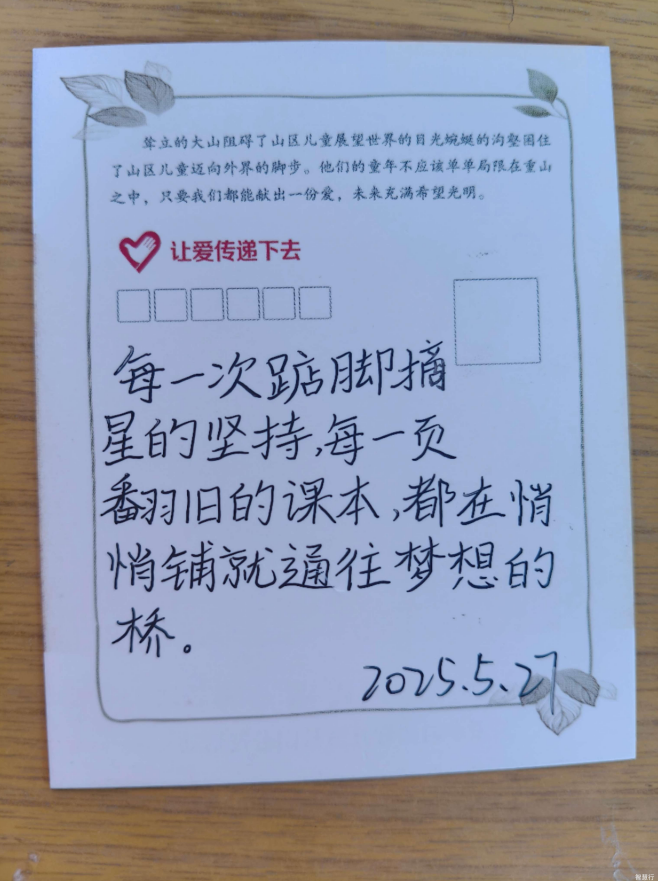 耸立的大山阻碍了山区儿童展望世界的目光蜿蜒的沟壑困住
了山区儿童迈向外界的脚步。他们的童年不应该单单局限在重山
之中，只要我们都能献出一份爱，未来充满希望光明。
让爱传递下去
每一次踮脚摘
星的坚持,每一页
翻旧的课本,都在悄
悄铺就通往梦想的
桥。
2025.5.27